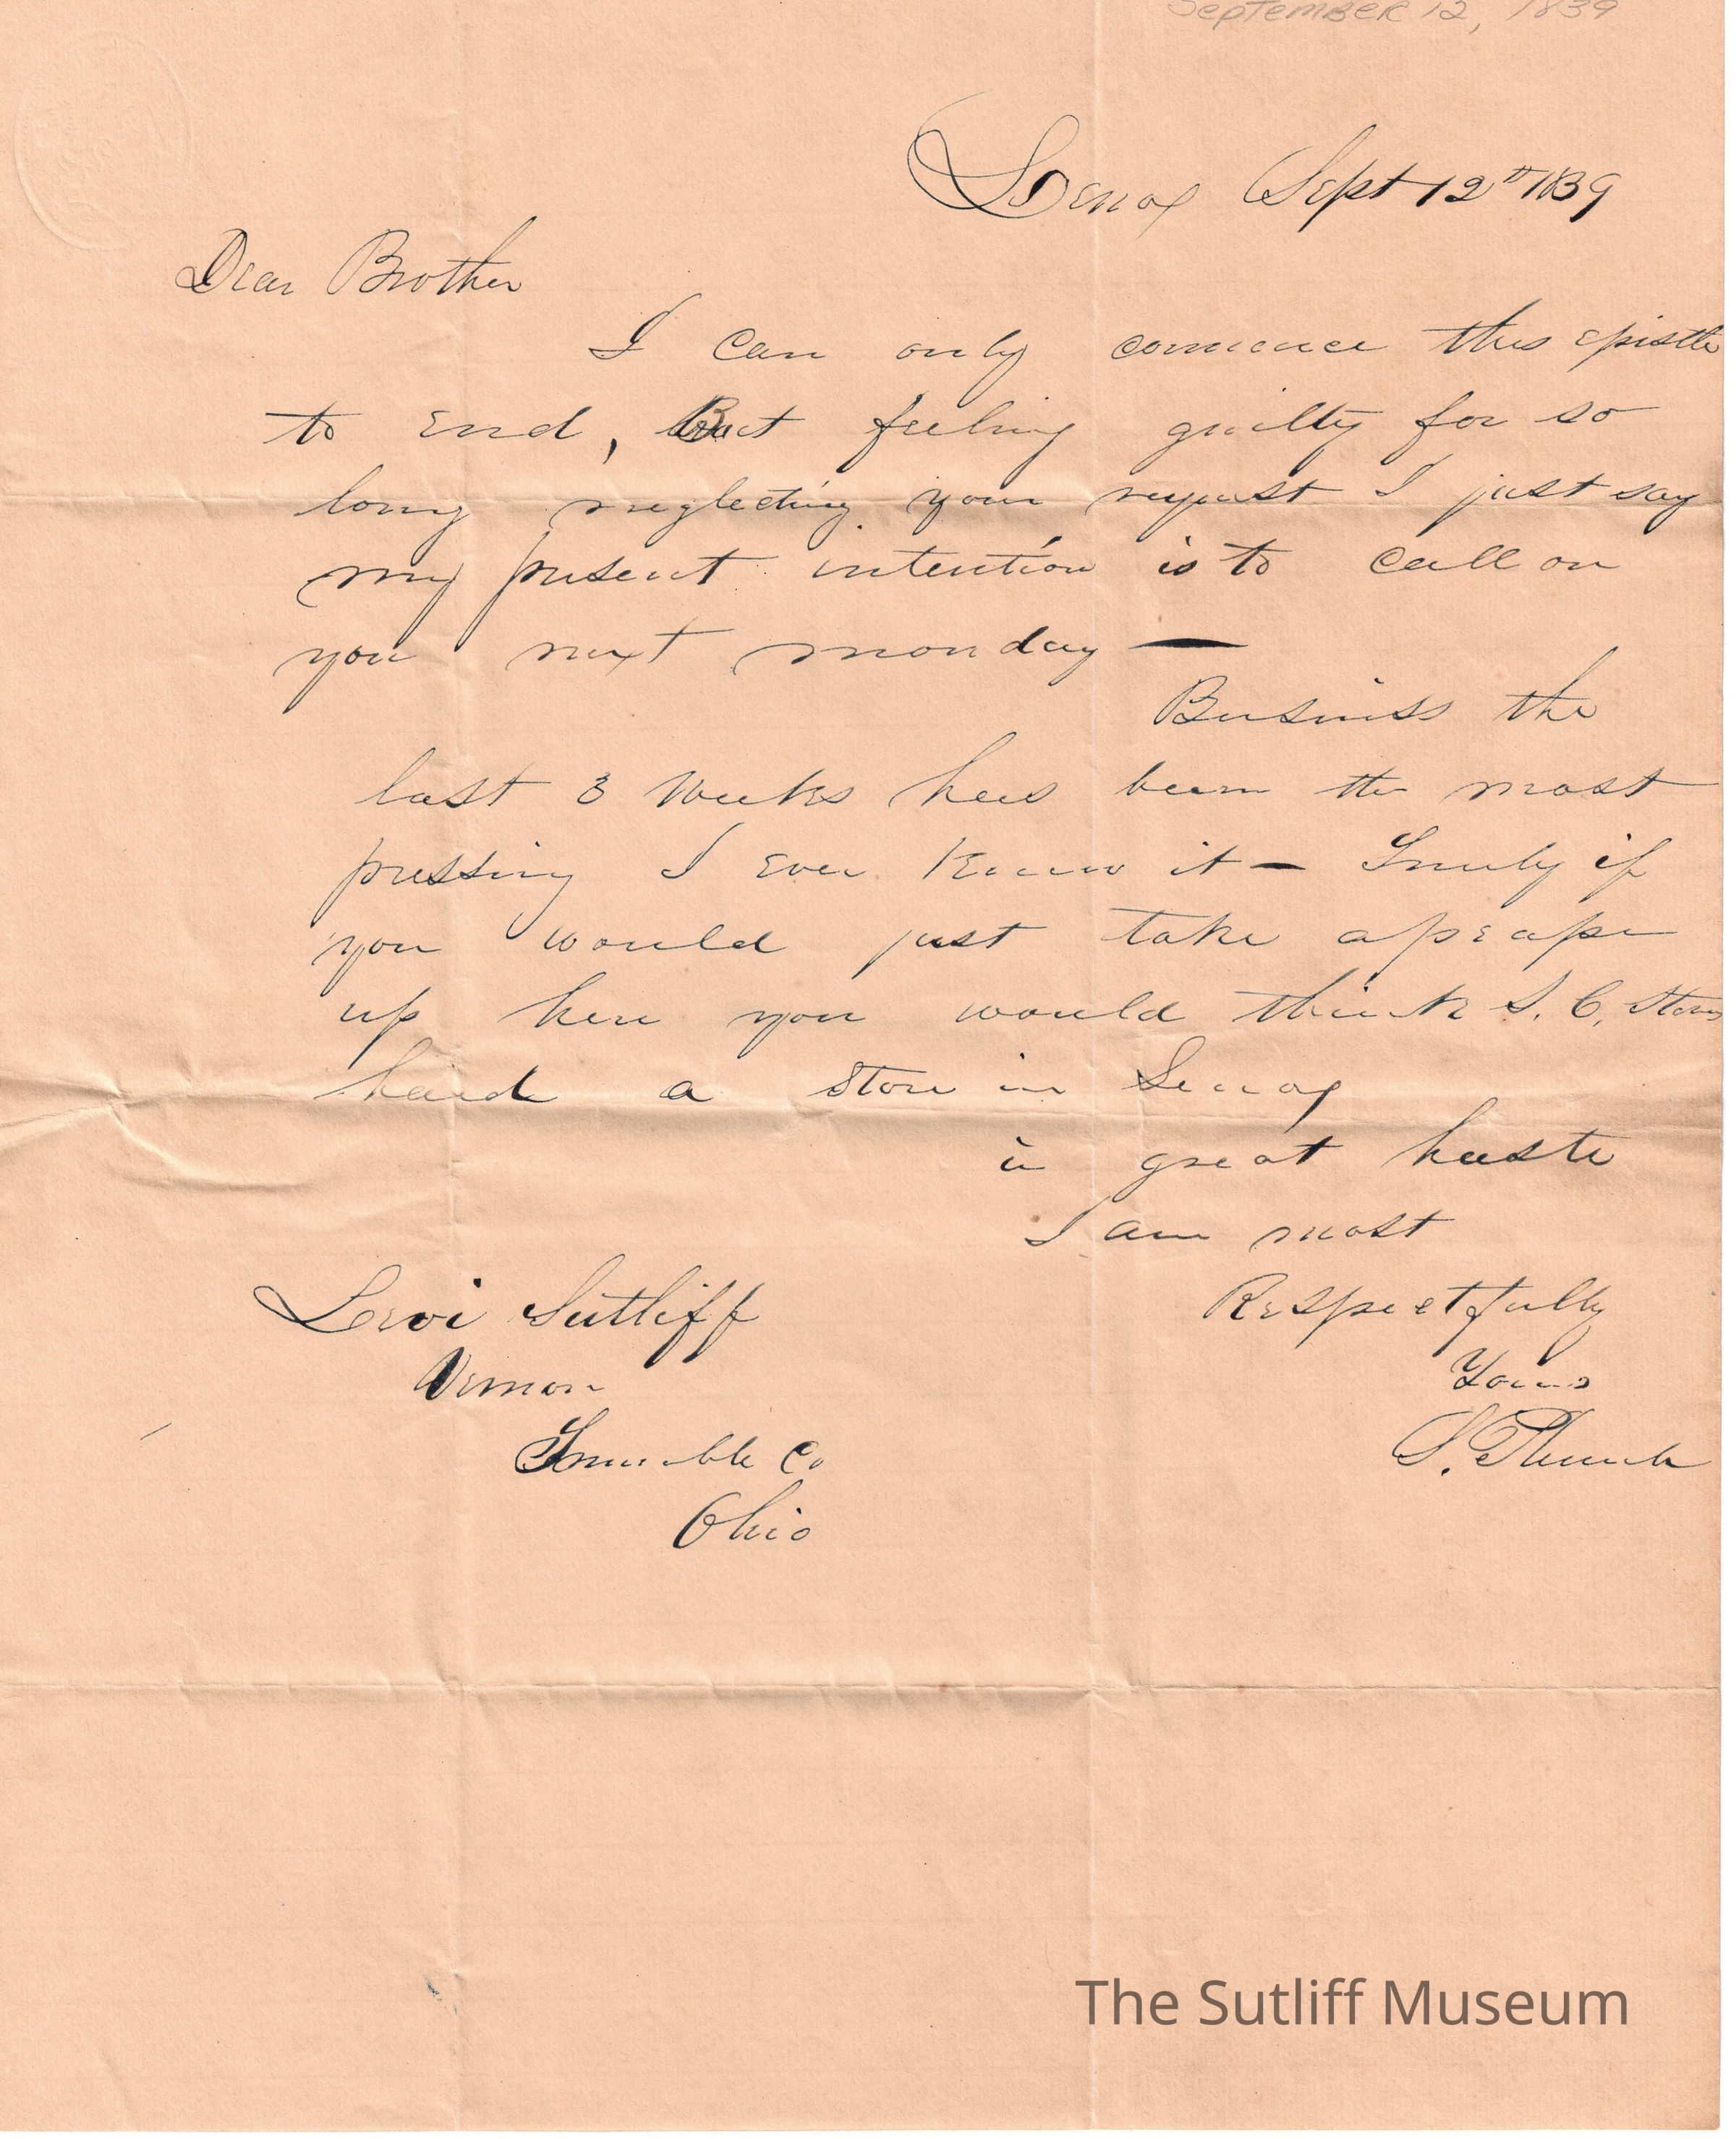 September 12, 1839
Lenox Sept 12th 1839
Dear Brother
I can only comence this epistle
to end, But feeling guilty for so
long neglecting your request I just say
my present intention is to call on
you next monday —
Business the
last 3 weeks has been the most
pressing I ever knew it — Truly if
you would just take a peape
up here you would think S. C. Stors
had a store in Lenox
in great haste
I am most
Respectfully
Yours
S. Plumb
Levi Sutliff
Vernon
Trumbble Co
Ohio
The Sutliff Museum